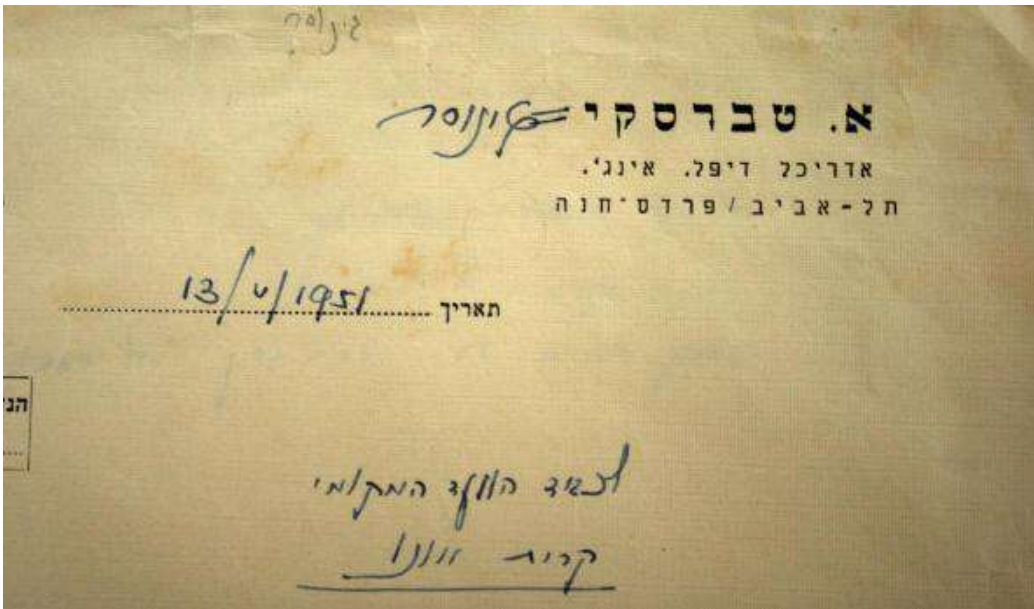 גינוסר
א. טברסקי = גינוסר
אדריכל דיפל. אינג'.
תל-אביב / פרדס-חנה
תאריך 13/V/1951
לכבוד הוועד המקומי
קרית אונו